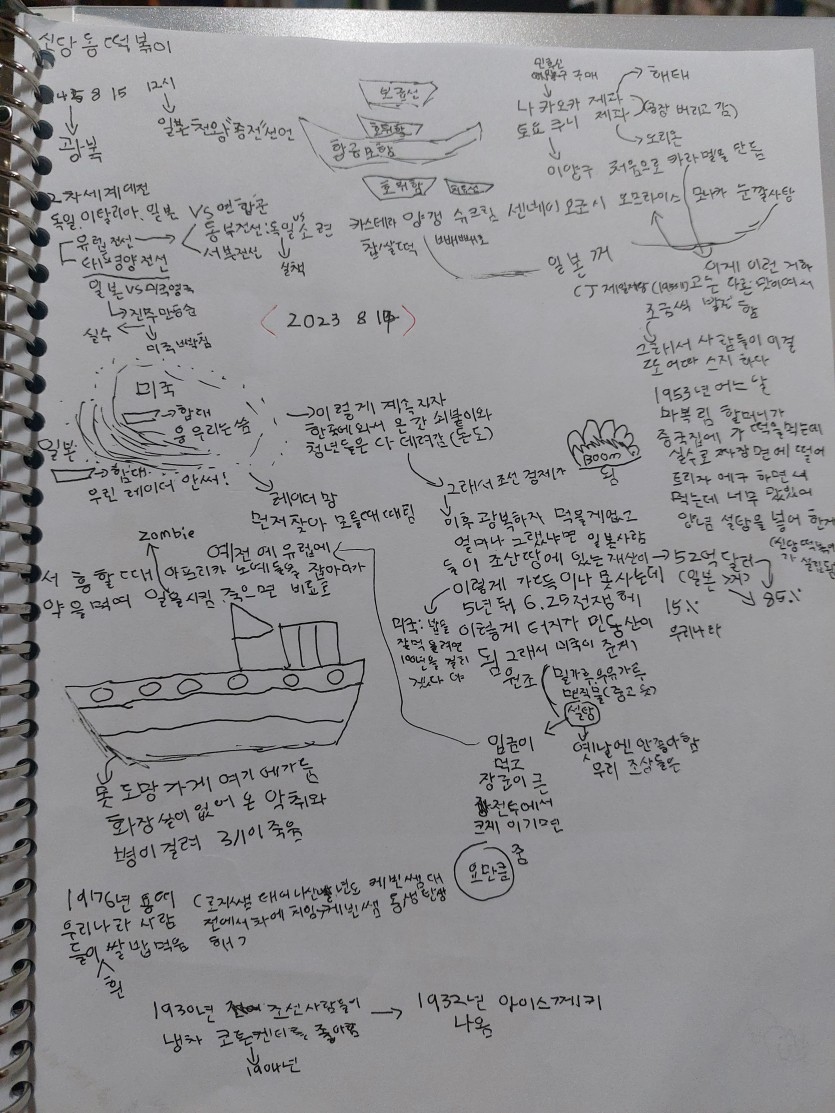 신당동 떡볶이
8 15
12시
광복
일본 천왕 "종전" 선언
보급선
호위함
항공모함
호위함
구매
나카오카 제과
토요쿠니 제과
해태
(공장 버리고 감)
오리온
이양구
처음으로 카라멜을 만듦
2차세계대전
독일, 이탈리아, 일본 VS 연합군
유럽전선
태평양전선
동부전선: 독일 VS 소련
서부전선
실책
일본 VS 미국영국
진주만공습
실수
미국 빡침
카스테라 양갱 슈크림 센베이 오꼬시
찹쌀떡
빼빼로
모나카 눈깔사탕
일본꺼
이제 이런 거하
고는 다른 맛이여서
조금씩 발전함
그래서 사람들이 이걸
또 어따 쓰지 하다
< 2023 8 14 >
미국
함대
웅 우리는 씀
일본
함대
우린 레이더 안써!
레이더 망
먼저찾아 모를때 때림
이렇게 계속 지자
한국에 와서 온 간 쇠붙이와
청년들은 다 데려감 (돈도)
그래서 조선 경제가
BOOM
됨
1953년 어느 날
마복림 할머니가
중국집에 가 떡을 먹는데
실수로 짜장면에 떨어
트리자 에구 하면서
먹는데 너무 맛있어
양념 설탕을 넣어 한게
(신당떡볶이
가 설립됨)
이후 광복하자 먹을게 없고
얼마나 그랬냐면 일본사람
들이 조선땅에 있는 재산이 → 52억 달러
(일본꺼)
85%
15%
우리나라
이렇게 가득이나 못사는데
5년 뒤 6.25전쟁에
이렇게 터지자 민둥산이
됨 그래서 미국이 준게
원조
미국: 밥을
잘먹을려면
100년은 걸리
겠다야
밀가루, 우유가루
면직물 (중고옷)
설탕
옛날엔 안좋아함
우리 조상들은
임금이
먹고
장군이 큰
전투에서
크게 이기면
요만큼
줌
Zombie
예전에 유럽에
서 흥할 때 아프리카 노예들을 잡아다가
약을 먹여 일을 시킴 죽으면 비료로
못 도망가게 여기에 가둠
화장실이 없어 온 악취와
병이 걸려 3/1이 죽음
1976년 용띠
우리나라 사람
들이 쌀밥먹음
흰
(로지쌤 태어나신 년도 케빈쌤 대
전에서 처음 케빈쌤 동생 탄생
해)
1930년 조선사람들이
냉차 코튼캔디를 좋아함
1904년
1932년 아이스께끼
나옴